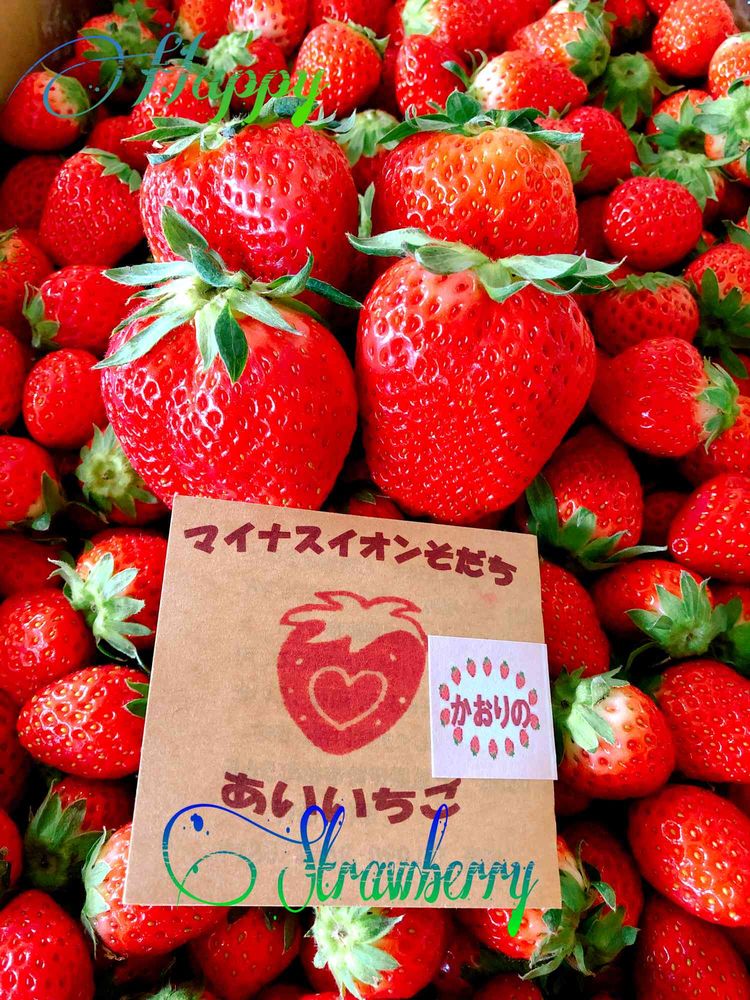 Happy
マイナスイオンそだち
かおりの
あいいちご
Strawberry